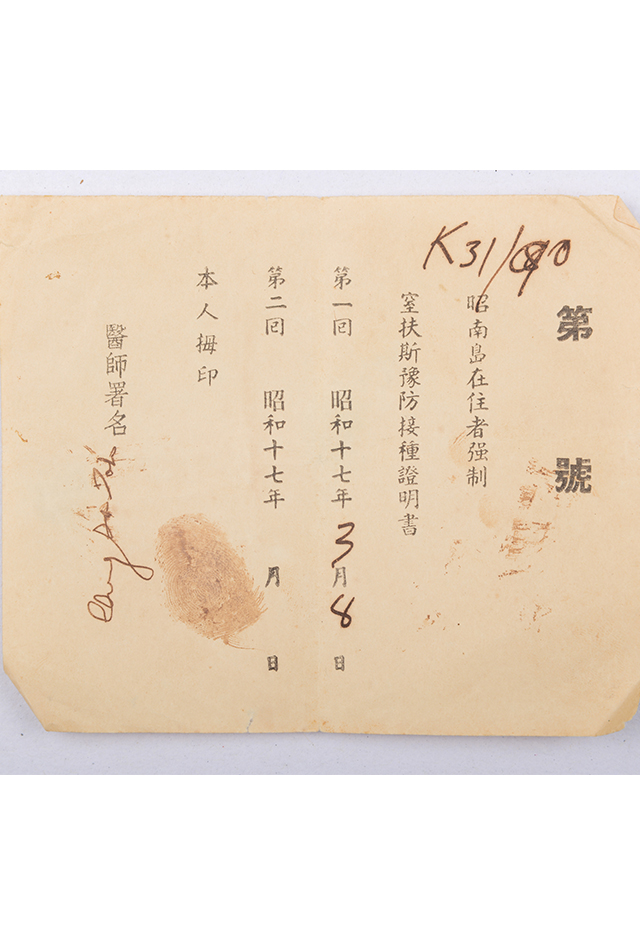 K31/
第 號
昭南島在住者强制
窒扶斯豫防接種證明書
第一回 昭和十七年3月8日
第二回 昭和十七年 月 日
本人拇印
醫師署名